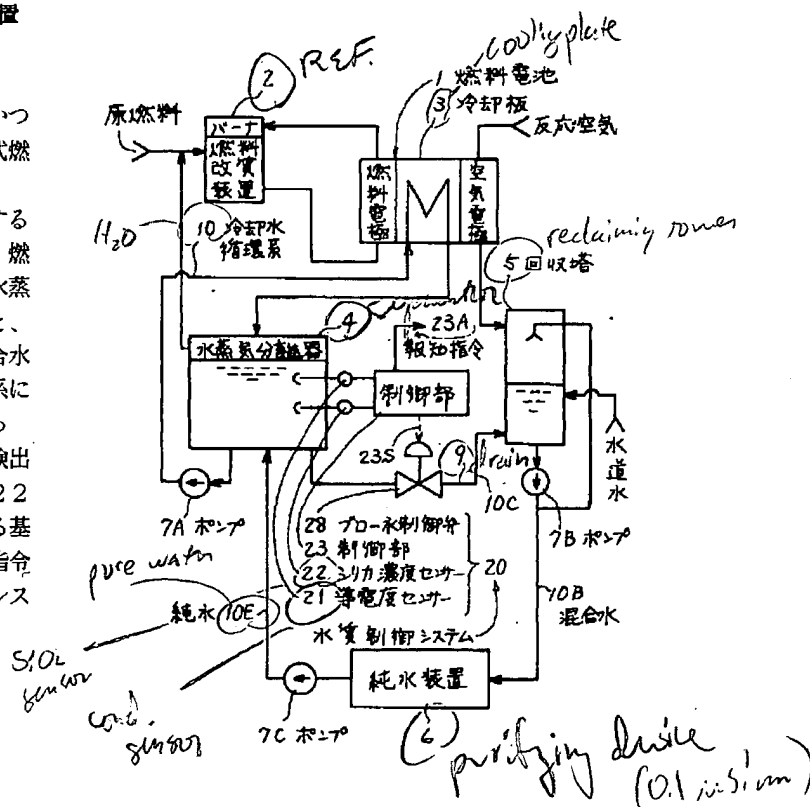 置
かつ
式燃
する
燃
水蒸
と、
合水
系に
つ
検出
22
る基
指令
ンス
cooling plate
2 REF.
1 燃料電池
3 冷却板
原燃料
反応空気
バーナ
燃料
改質
装置
燃料電極
空気電極
H₂O
10 冷却水
循環系
reclaiming tower
5 回収塔
4
23A
報知指令
水蒸気分離器
制御部
23S
9 drain
10C
水道水
7A ポンプ
7B ポンプ
28 ブロー水制御弁
23 制御部
22 シリカ濃度センサー
21 導電度センサー
20
水質制御システム
pure water
純水 10E
10B
混合水
SiO₂
sensor
cond.
sensor
7C ポンプ
純水装置
6
purifying device